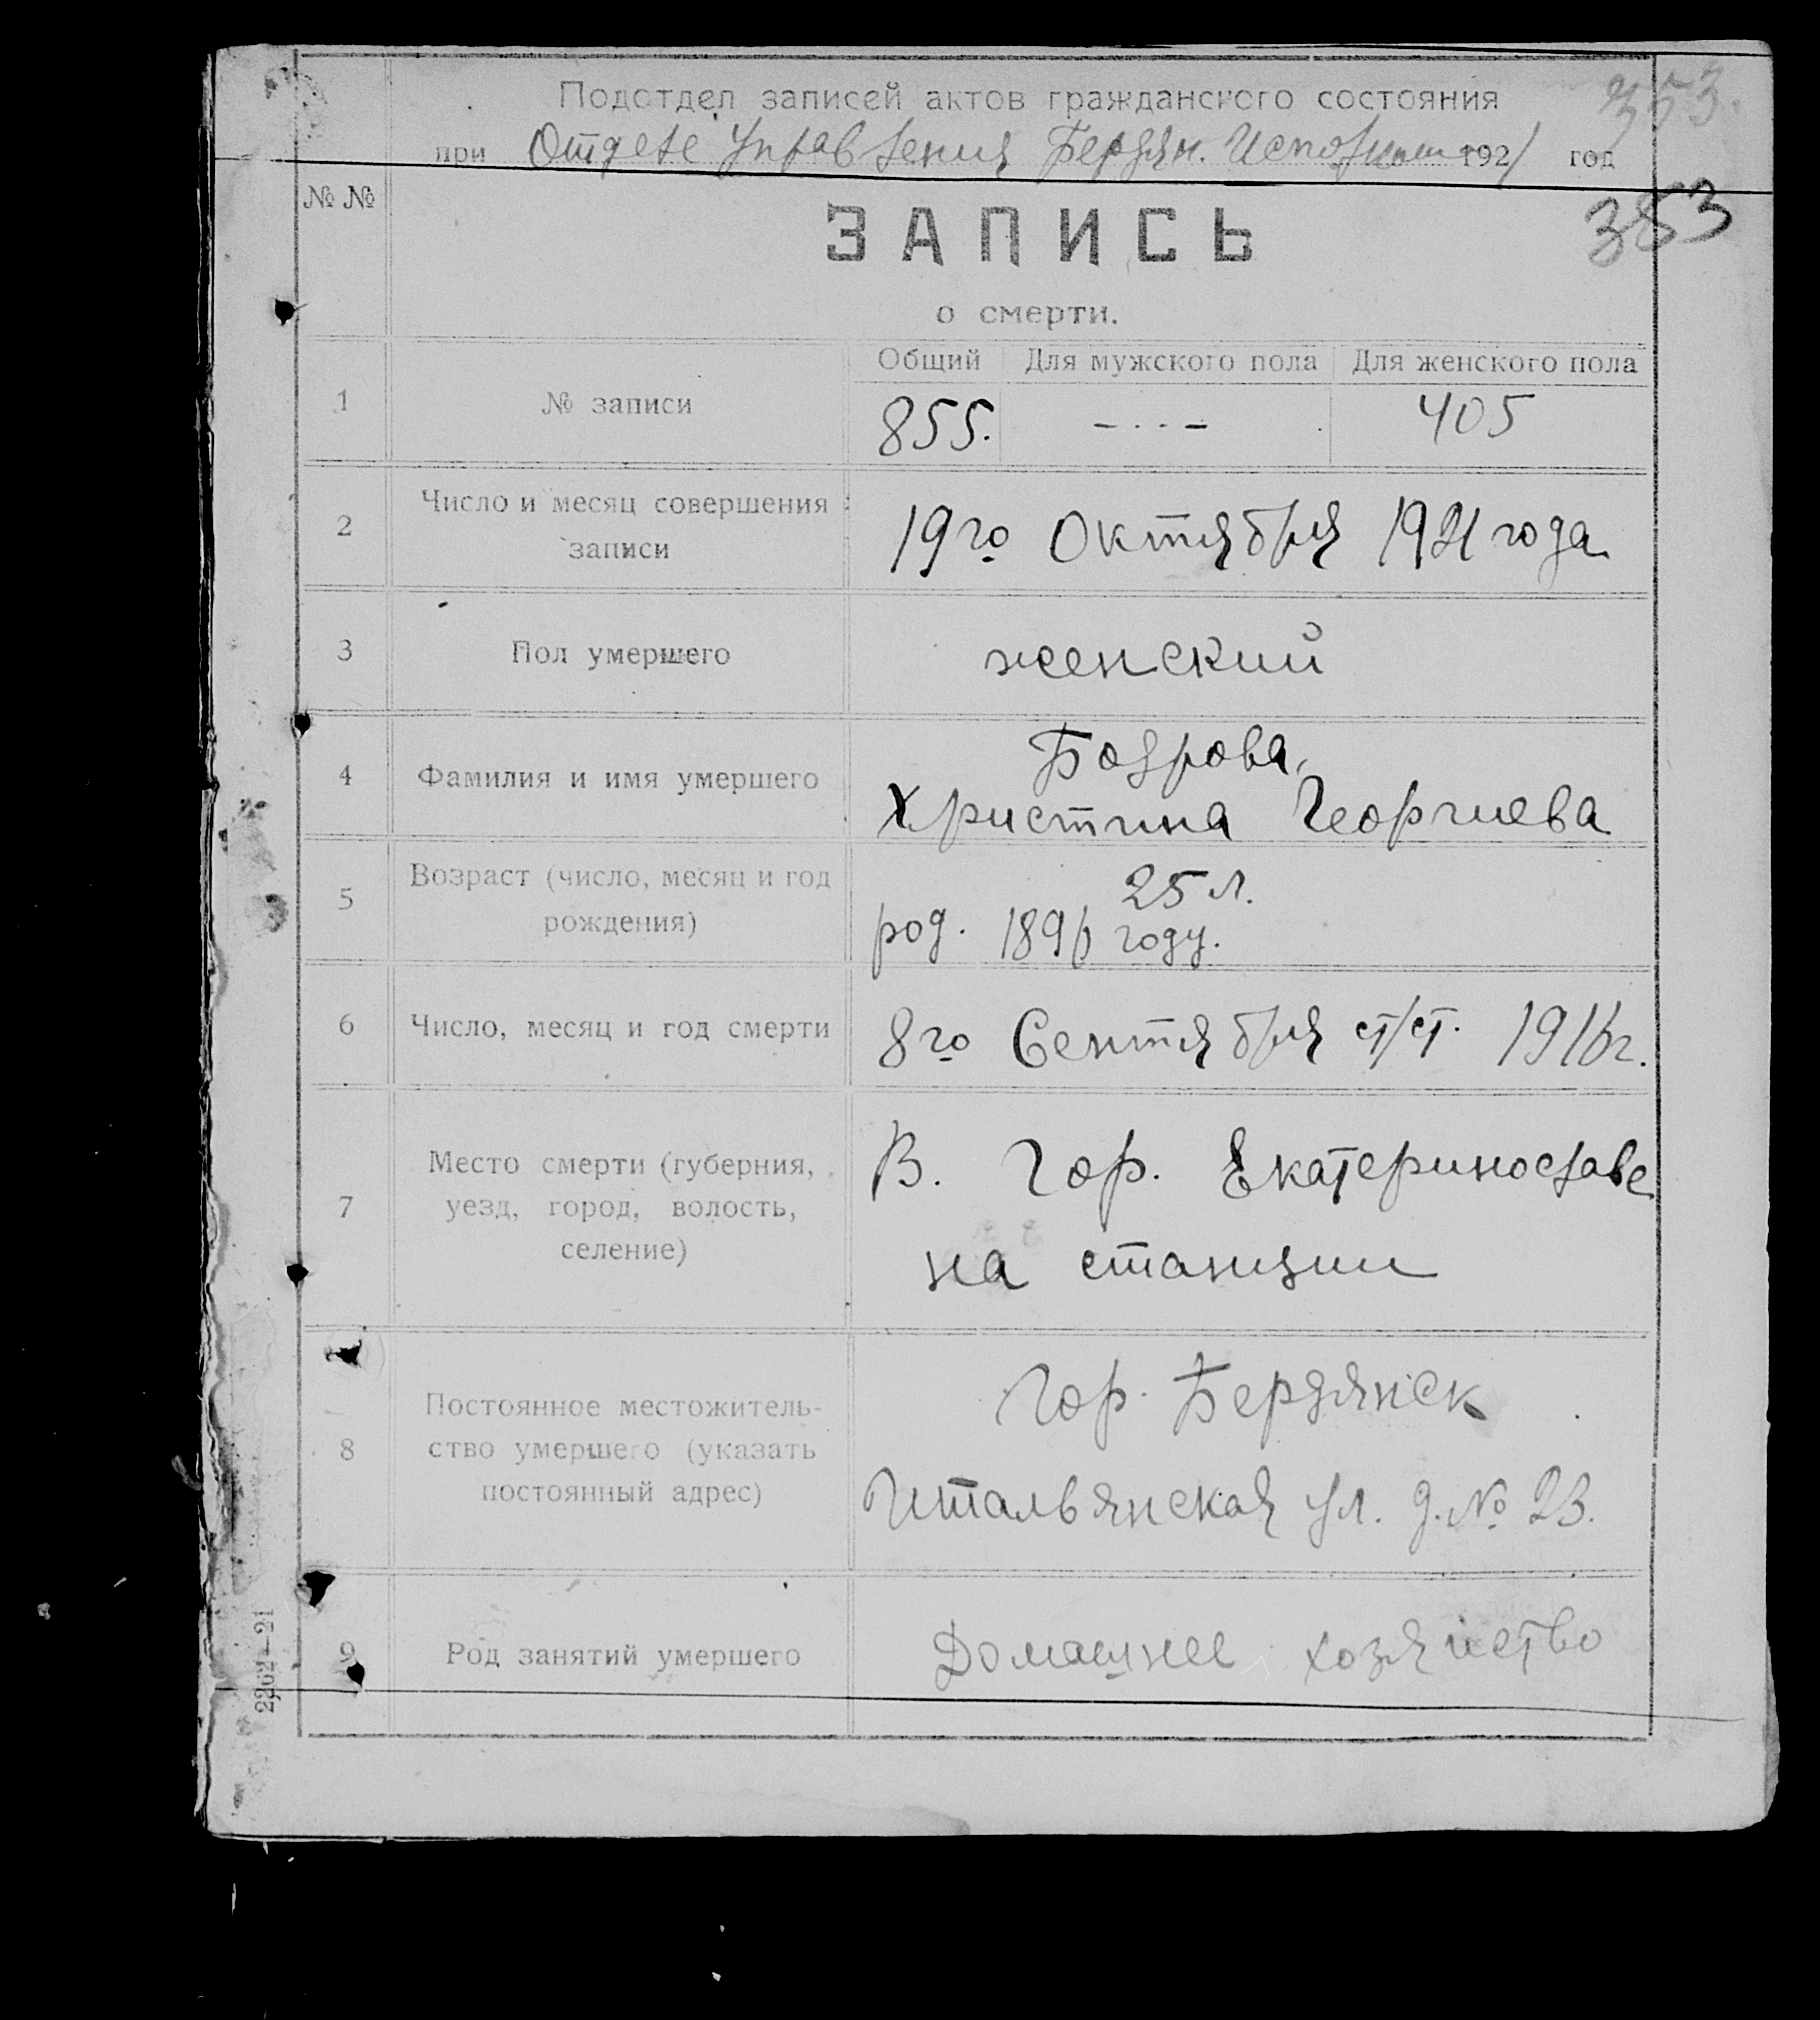 353.
Подотдел записей актов гражданского состояния
при Отделе Управления Бердян. Исполком 1921 год
353
№ №
ЗАПИСЬ
о смерти.
Общий Для мужского пола Для женского пола
1 № записи 855. – . . – 405
2 Число и месяц совершения записи
19го Октября 1921 года
3 Пол умершего женский
4 Фамилия и имя умершего
Бодрова,
Христина Георгиева
5 Возраст (число, месяц и год рождения)
25 л.
род. 1891 году.
6 Число, месяц и год смерти 8го Сентября ст/ст. 1916 г.
7 Место смерти (губерния, уезд, город, волость, селение)
В. Гор. Екатеринославе
на станции
8 Постоянное местожитель-
ство умершего (указать
постоянный адрес)
Гор. Бердянск
Итальянская ул. д. № 23.
9 Род занятий умершего Домашнее хозяйство
2262–21